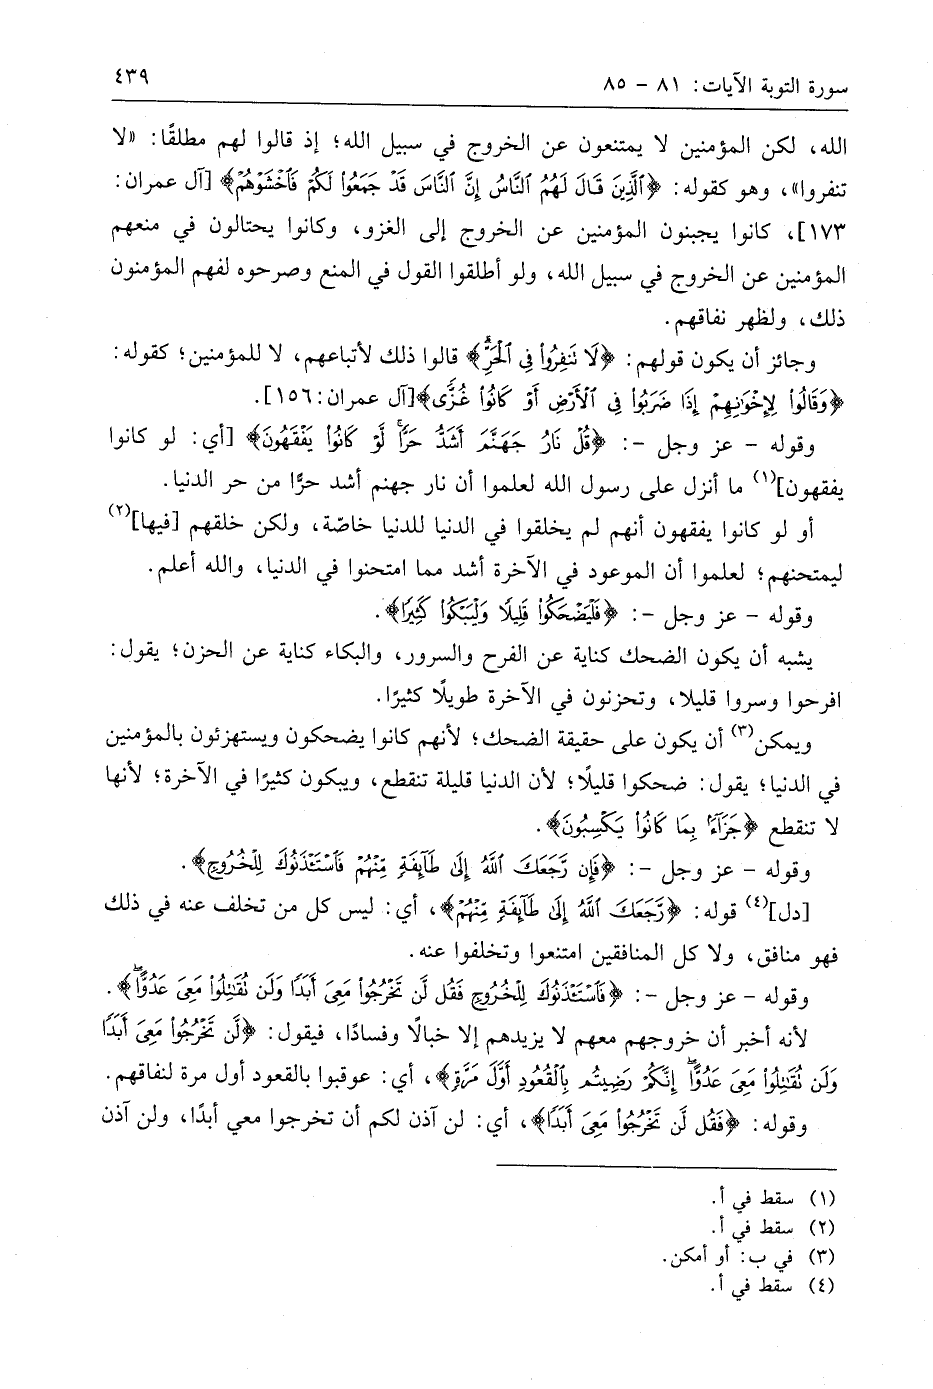 سورة التوبة الآيات: ٨١ - ٨٥
٤٣٩
الله، لكن المؤمنين لا يمتنعون عن الخروج في سبيل الله؛ إذ قالوا لهم مطلقًا: «لا
تنفروا»، وهو كقوله: ﴿ٱلَّذِينَ قَالَ لَهُمُ ٱلنَّاسُ إِنَّ ٱلنَّاسَ قَدْ جَمَعُوا۟ لَكُمْ فَٱخْشَوْهُمْ﴾ [آل عمران:
١٧٣]، كانوا يجبنون المؤمنين عن الخروج إلى الغزو، وكانوا يحتالون في منعهم
المؤمنين عن الخروج في سبيل الله، ولو أطلقوا القول في المنع وصرحوه لفهم المؤمنون
ذلك، ولظهر نفاقهم.
وجائز أن يكون قولهم: ﴿لَا تَنفِرُوا۟ فِى ٱلْحَرِّ﴾ قالوا ذلك لأتباعهم، لا للمؤمنين؛ كقوله:
﴿وَقَالُوا۟ لِإِخْوَٰنِهِمْ إِذَا ضَرَبُوا۟ فِى ٱلْأَرْضِ أَوْ كَانُوا۟ غُزًّى﴾[آل عمران:١٥٦].
وقوله - عز وجل -: ﴿قُلْ نَارُ جَهَنَّمَ أَشَدُّ حَرًّا ۚ لَّوْ كَانُوا۟ يَفْقَهُونَ﴾ [أي: لو كانوا
يفقهون](١) ما أنزل على رسول الله لعلموا أن نار جهنم أشد حرًّا من حر الدنيا.
أو لو كانوا يفقهون أنهم لم يخلقوا في الدنيا للدنيا خاصّة، ولكن خلقهم [فيها](٢)
ليمتحنهم؛ لعلموا أن الموعود في الآخرة أشد مما امتحنوا في الدنيا، والله أعلم.
وقوله - عز وجل -: ﴿فَلْيَضْحَكُوا۟ قَلِيلًا وَلْيَبْكُوا۟ كَثِيرًا﴾.
يشبه أن يكون الضحك كناية عن الفرح والسرور، والبكاء كناية عن الحزن؛ يقول:
افرحوا وسروا قليلا، وتحزنون في الآخرة طويلًا كثيرًا.
ويمكن(٣) أن يكون على حقيقة الضحك؛ لأنهم كانوا يضحكون ويستهزئون بالمؤمنين
في الدنيا؛ يقول: ضحكوا قليلًا؛ لأن الدنيا قليلة تنقطع، ويبكون كثيرًا في الآخرة؛ لأنها
لا تنقطع ﴿جَزَآءًۢ بِمَا كَانُوا۟ يَكْسِبُونَ﴾.
وقوله - عز وجل -: ﴿فَإِن رَّجَعَكَ ٱللَّهُ إِلَىٰ طَآئِفَةٍ مِّنْهُمْ فَٱسْتَـْٔذَنُوكَ لِلْخُرُوجِ﴾.
[دل](٤) قوله: ﴿رَّجَعَكَ ٱللَّهُ إِلَىٰ طَآئِفَةٍ مِّنْهُمْ﴾، أي: ليس كل من تخلف عنه في ذلك
فهو منافق، ولا كل المنافقين امتنعوا وتخلفوا عنه.
وقوله - عز وجل -: ﴿فَٱسْتَـْٔذَنُوكَ لِلْخُرُوجِ فَقُل لَّن تَخْرُجُوا۟ مَعِىَ أَبَدًا وَلَن تُقَٰتِلُوا۟ مَعِىَ عَدُوًّا ۖ﴾.
لأنه أخبر أن خروجهم معهم لا يزيدهم إلا خبالًا وفسادًا، فيقول: ﴿لَّن تَخْرُجُوا۟ مَعِىَ أَبَدًا
وَلَن تُقَٰتِلُوا۟ مَعِىَ عَدُوًّا ۖ إِنَّكُمْ رَضِيتُم بِٱلْقُعُودِ أَوَّلَ مَرَّةٍ﴾، أي: عوقبوا بالقعود أول مرة لنفاقهم.
وقوله: ﴿فَقُل لَّن تَخْرُجُوا۟ مَعِىَ أَبَدًا﴾، أي: لن آذن لكم أن تخرجوا معي أبدًا، ولن آذن
(١) سقط في أ.
(٢) سقط في أ.
(٣) في ب: أو أمكن.
(٤) سقط في أ.